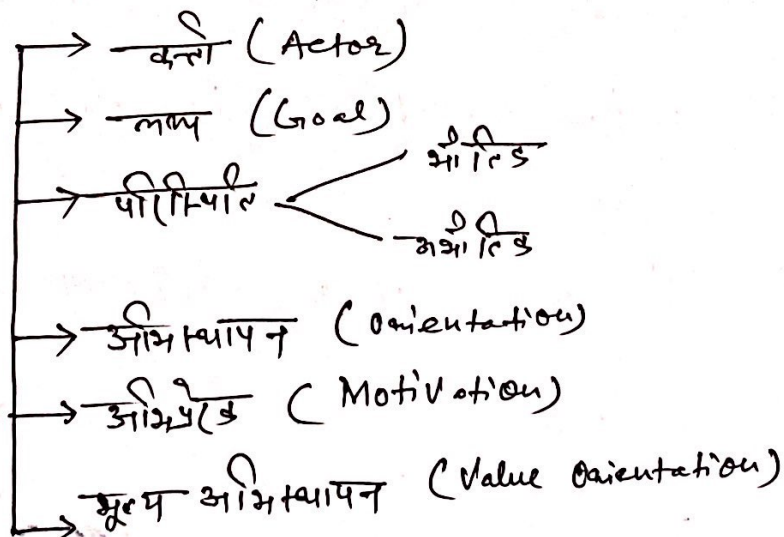 कर्त्ता (Actor)
लक्ष्य (Goal)
भौतिक
परिस्थिति
अभौतिक
अभिस्थापन (Orientation)
अभिप्रेरक (Motivation)
मूल्य अभिस्थापन (Value Orientation)